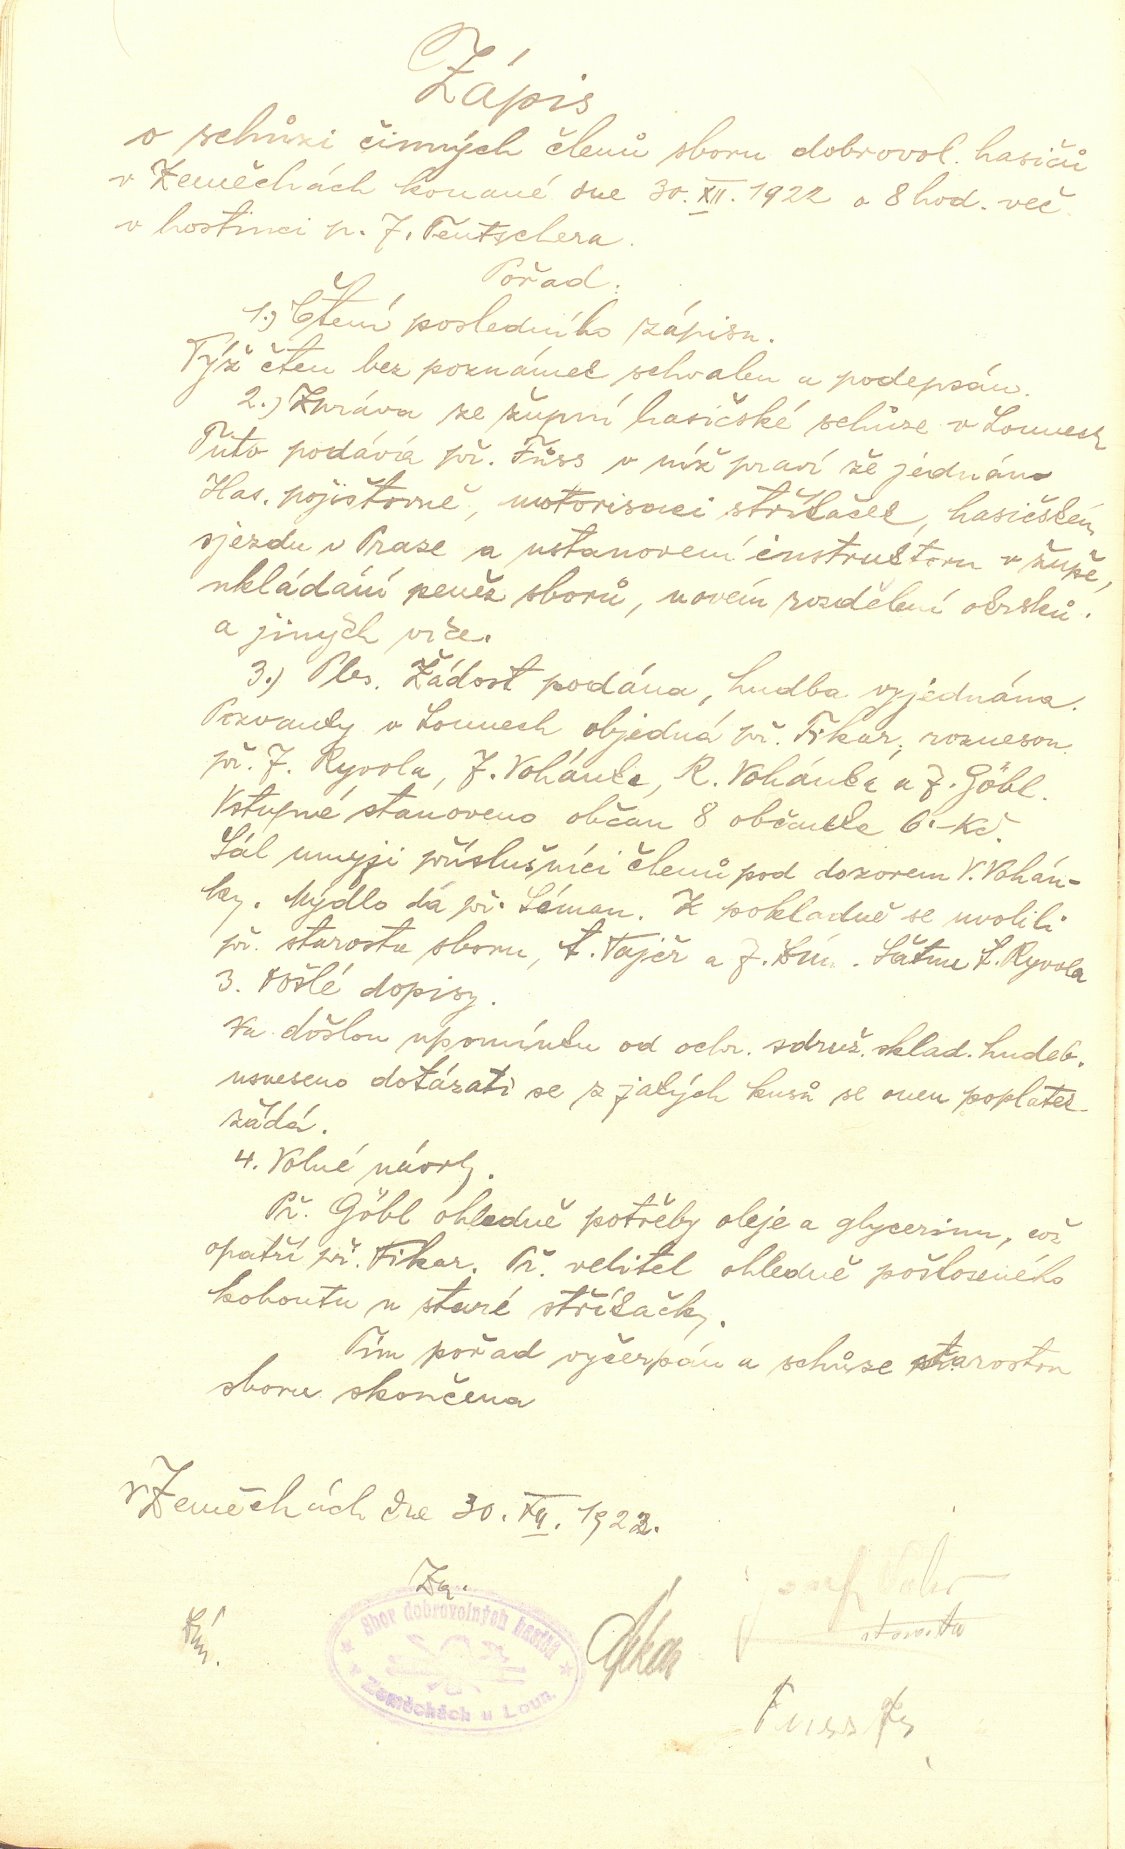 Zápis
o schůzi činných členů sboru dobrovol. hasičů
v Zeměchách konané dne 30. XII. 1922 o 8 hod. več.
v hostinci p. J. Teutschera.
Pořad:
1.) Čtení posledního zápisu.
Týž čten bez poznámek schvalen a podepsán.
2.) Zpráva ze župní hasičské schůze v Lounech
Tuto podává př. Füss v níž praví že jednáno
Has. pojišťovně, motorisaci stříkaček, hasičském
sjezdu v Praze a ustanovení instruktoru v župě,
ukládání peněz sborů, novém rozdělení okrsků.
a jiných více.
3.) Ples. Žádost podána, hudba vyjednána.
Pozvánky v Lounech objedná př. Fikar, roznesou
př. J. Ryvola, J. Vohánka, R. Vohánka a J. Göbl.
Vstupné stanoveno občan 8 občanka 6.- Kč.
Sál umyji příslušníci členů pod dozorem V. Vohán-
ky. Mýdlo dá př. Léman. K pokladně se uvolili
př. starosta sboru, t. Tajčr a J. . Šatnu L. Ryvola
3. Došlé dopisy.
Na došlou upomínku od ochr. sdruž. sklad. hudeb.
usneseno dotázati se z jakých kusů se onen poplatek
žádá.
4. Volné návrhy.
Př. Göbl ohledně potřeby oleje a glycerinu, což
opatří př. Fikar. Př. velitel ohledně poškozeného
kohoutu u staré stříkačky.
Tím pořad vyčerpán a schůze starostou
sboru skončena
v Zeměchách dne 30. XII. 1922.
Za.
Sbor dobrovolných hasičů
v Zeměchách u Loun.
starosta
Fuss